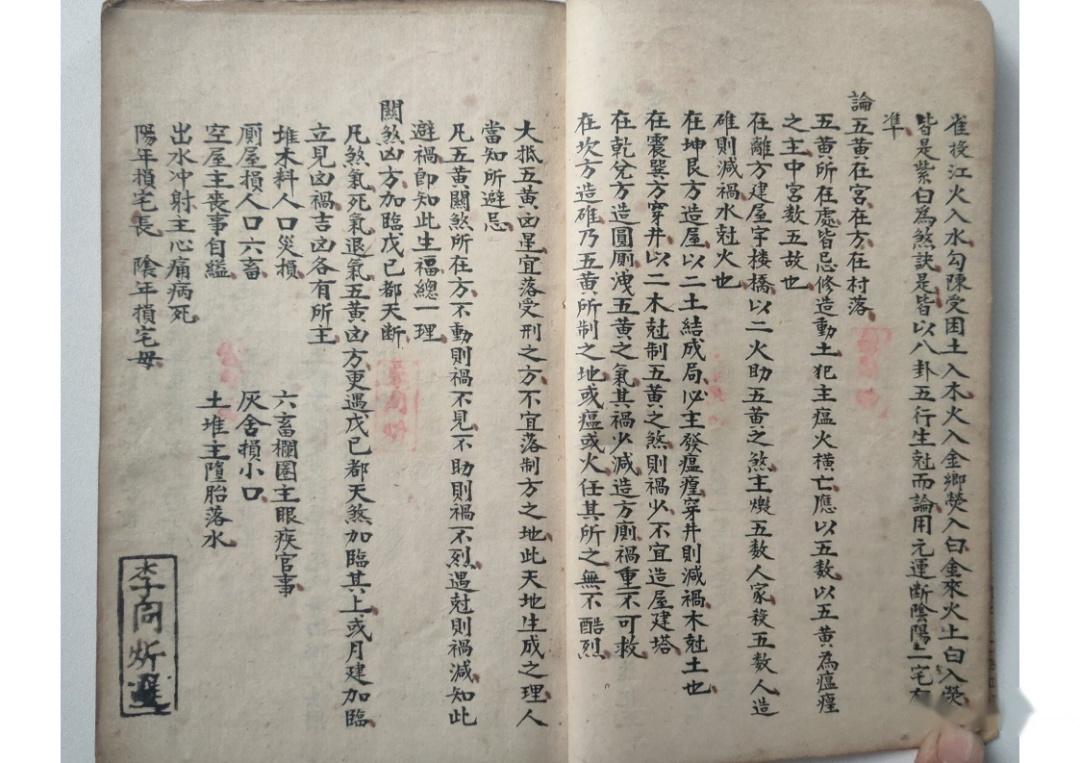 雀投江火入水勾陳受困土入木火入金鄉熒入白金來火上白入熒
皆是紫白為煞訣是皆以八卦五行生尅而論用元運断陰陽二宅有
凖
論五黃在宮在方在村落
五黃所在處皆忌修造動土犯主瘟火橫亡應以五数以五黃為瘟㾮
之主中宮数五故也
在離方建屋宇楼橋以二火助五黃之煞主燬五数人家殺五数人造
碓則減禍水尅火也
在坤艮方造屋以二土結成局必主發瘟㾮穿井則減禍木尅土也
在震巽方穿井以二木尅制五黃之煞則禍少不宜造屋建塔
在乾兌方造圓厠洩五黃之氣其禍少減造方厠禍重不可救
在坎方造碓乃五黃所制之地或瘟或火任其所之無不酷烈
大抵五黃凶星宜落受刑之方不宜落制方之地此天地生成之理人
當知所避忌
凡五黃關煞所在方不動則禍不見不助則禍不烈遇尅則禍減知此
避禍卽知此生福總一理
關煞凶方加臨戊己都天断
凡煞氣死氣退氣五黃凶方更遇戊己都天煞加臨其上或月建加臨
立見凶禍吉凶各有所主
堆木料人口災損 六畜欄圈主眼疾官事
厠屋損人口六畜 灰舍損小口
空屋主喪事自縊 土堆主墮胎落水
出水冲射主心痛病死
陽年損宅長 陰年損宅母
李向炘選